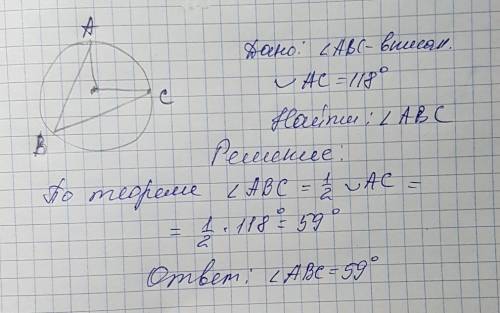 A
C
B
Дано: ∠ABC - вписан.
◡ AC = 118°
Найти: ∠ABC
Решение:
По теореме ∠ABC = 1/2 ◡ AC =
= 1/2 · 118° = 59°
Ответ: ∠ABC = 59°